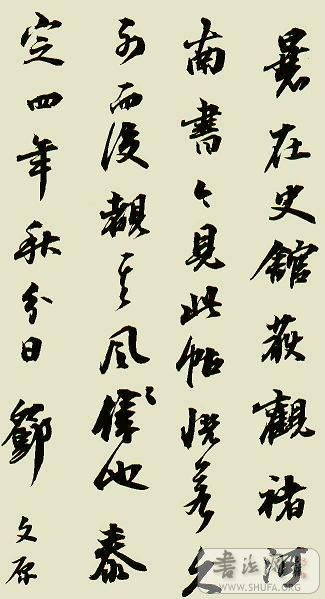 曩在史館獲觀褚河
南書今見此帖恍若久
別而復覩其風儀也泰
定四年秋分日鄧文原
WWW.SHUFA.ORG